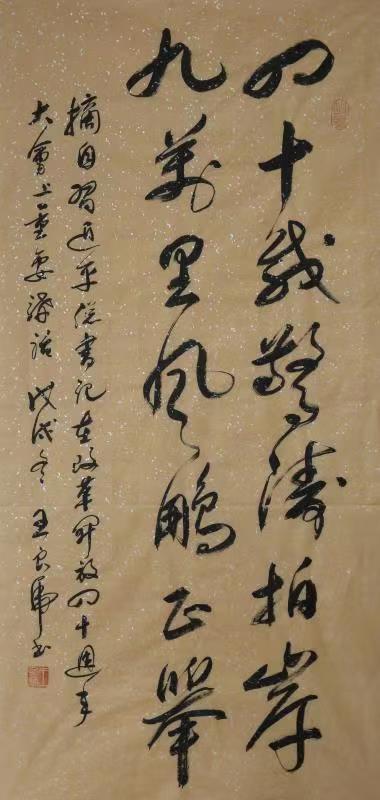 四十载惊涛拍岸
九萬里风鹏正举
摘自習近平总書记在改革开放四十週年
大會上重要讲话 戊戌冬 王 虎书